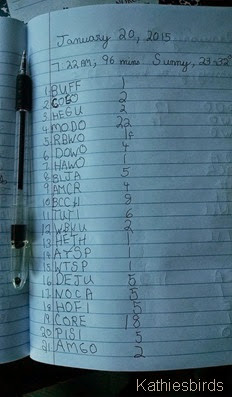 January 20, 2015
7:22 AM, 96 mins Sunny, 23-32
1. BUFF 1
2. COGO 2
3. HEGU 2
4. MODO 22
5. RBWO 1f
6. DOWO 4
7. HAWO 1
8. BLJA 5
9. AMCR 4
10. BCCH 8
11. TUTI 6
12. WBNU 2
13. HETH 1
14. ATSP 1
15. WTSP 1
16. DEJU 5
17. NOCA 5
18. HOFI 5
19. CORE 18
20. PISI 5
21. AMGO 2
Kathiesbirds